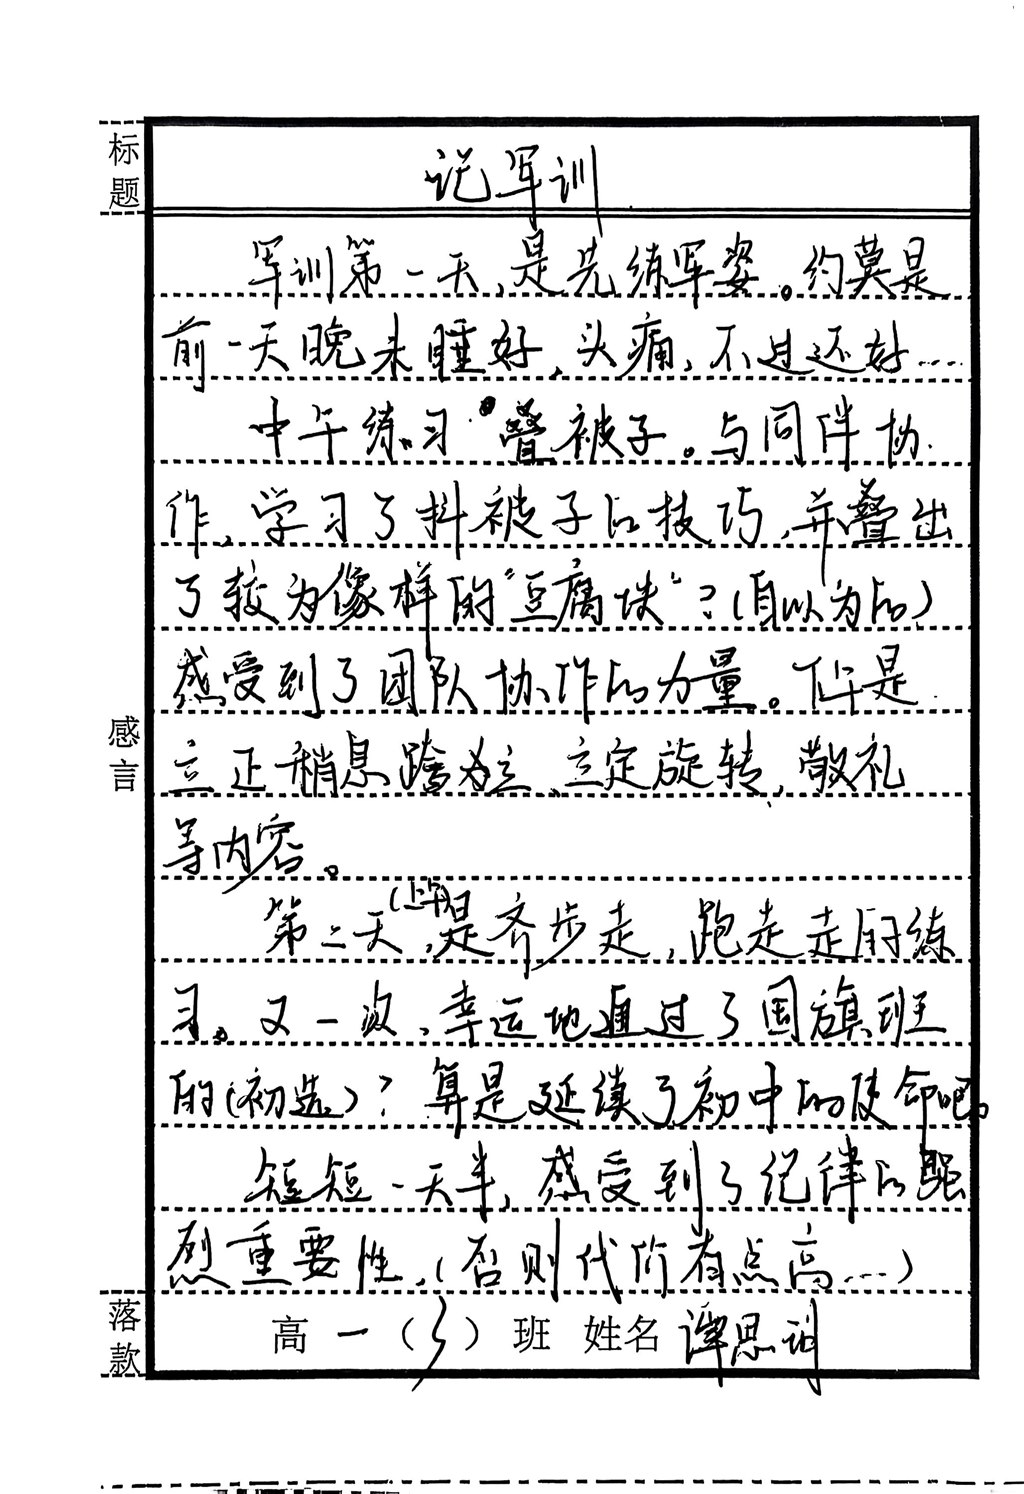 标题
记军训
军训第一天,是先练军姿。约莫是
前一天晚未睡好,头痛,不过还好……
中午练习叠被子。与同伴协
作,学习了抖被子的技巧,并叠出
了较为像样的“豆腐块”?(自以为的)
感受到了团队协作的力量。下午是
立正稍息跨立、立定旋转,敬礼
等内容。
第二天(上午),是齐步走,跑走走的练
习。又一次,幸运地通过了国旗班
的(初选)?算是延续了初中的使命吧。
短短一天半,感受到了纪律的强
烈重要性,(否则代价有点高……)
感言
落款
高一(3)班 姓名 谭思